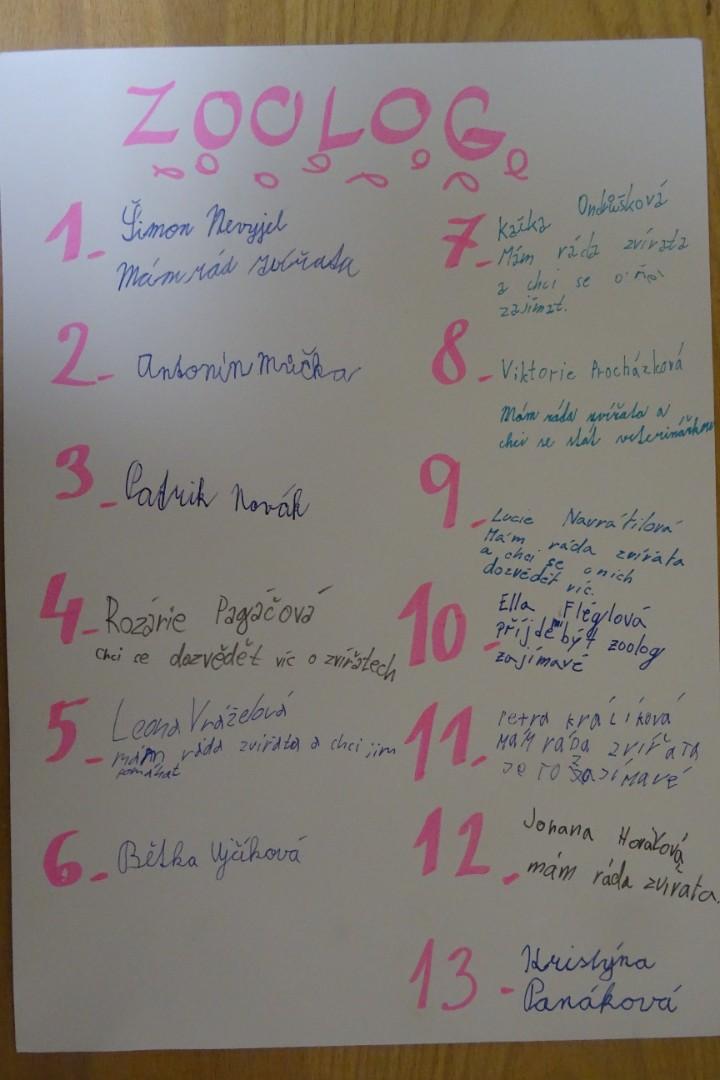 ZOOLOG
1. Šimon Nevyjel
Mám rád zvířata
2. Antonín Mučka
3. Patrik Novák
4. Rozárie Pagáčová
Chci se dozvědět víc o zvířatech
5. Leona Vraželová
mám ráda zvířata a chci jim
pomáhat
6. Bětka Vyčíková
7. Katka Ondrůšková
Mám ráda zvířata
a chci se o ně
zajímat.
8. Viktorie Procházková
Mám ráda zvířata a
chci se stát veterinářkou
9. Lucie Navrátilová
Mám ráda zvířata
a chci se o nich
dozvědět víc.
10. Ella Fléglová
příjde mi být zoolog
zajímavé
11. Petra KRÁLÍKOVÁ
MÁM RÁDA ZVÍŘATA
JE TO ZAJÍMAVÉ
12. Johana
mám ráda zvířata.
13. Kristýna
Panáková